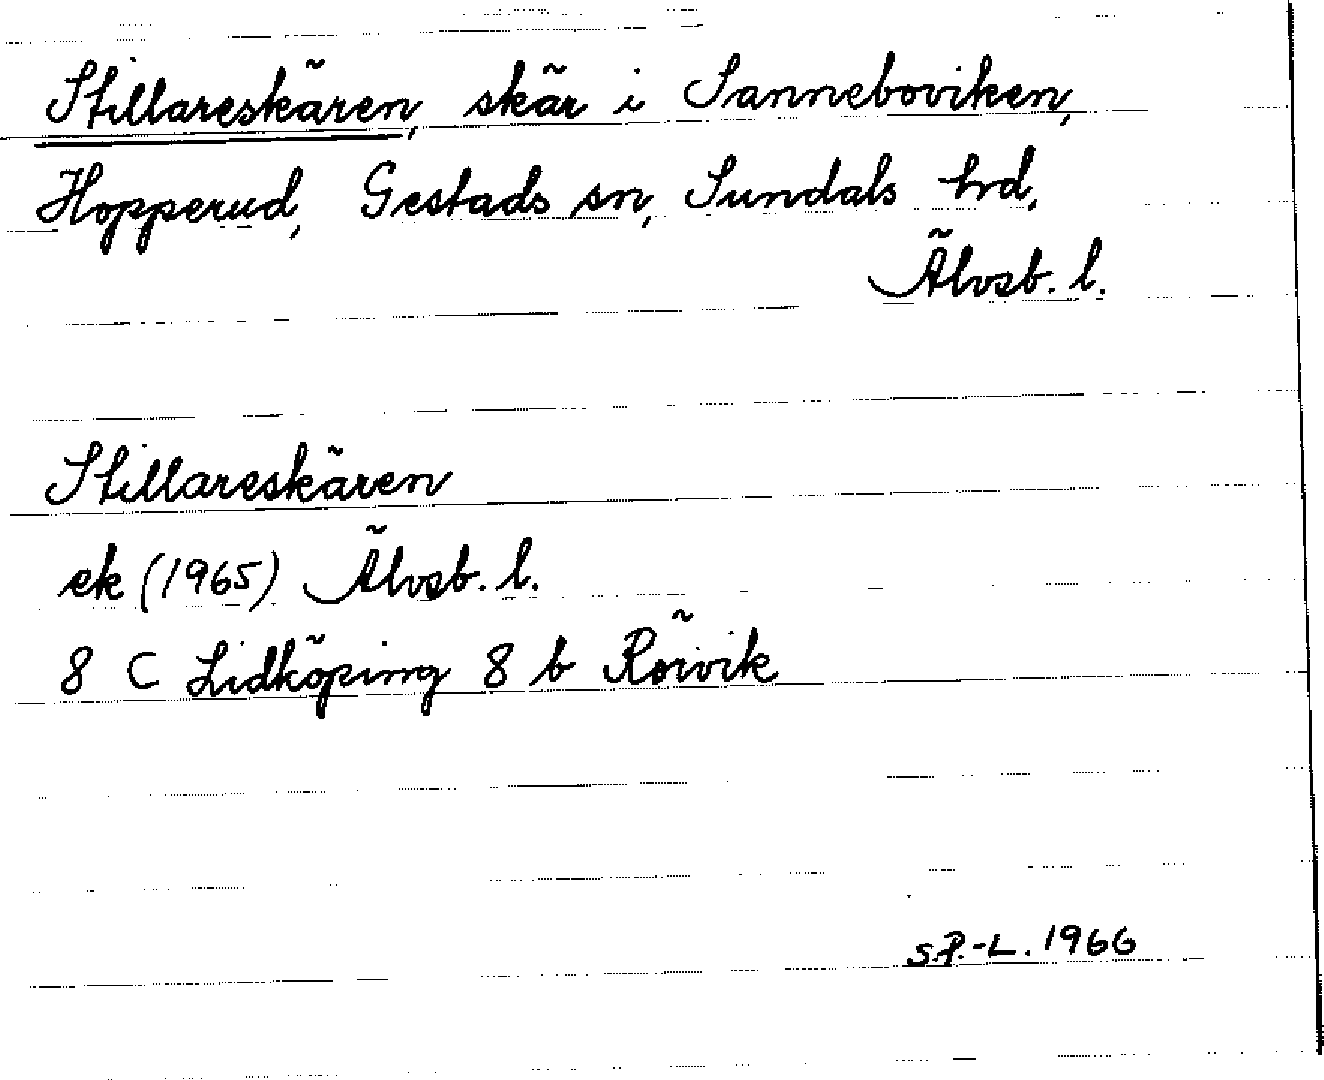 Stillareskären, skär i Sanneboviken,
Hopperud, Gestads sn, Sundals hrd,
Älvsb. l.
Stillareskären
ek (1965) Älvsb. l.
8 C Lidköping 8 b Rörvik
S.P.-L. 1966